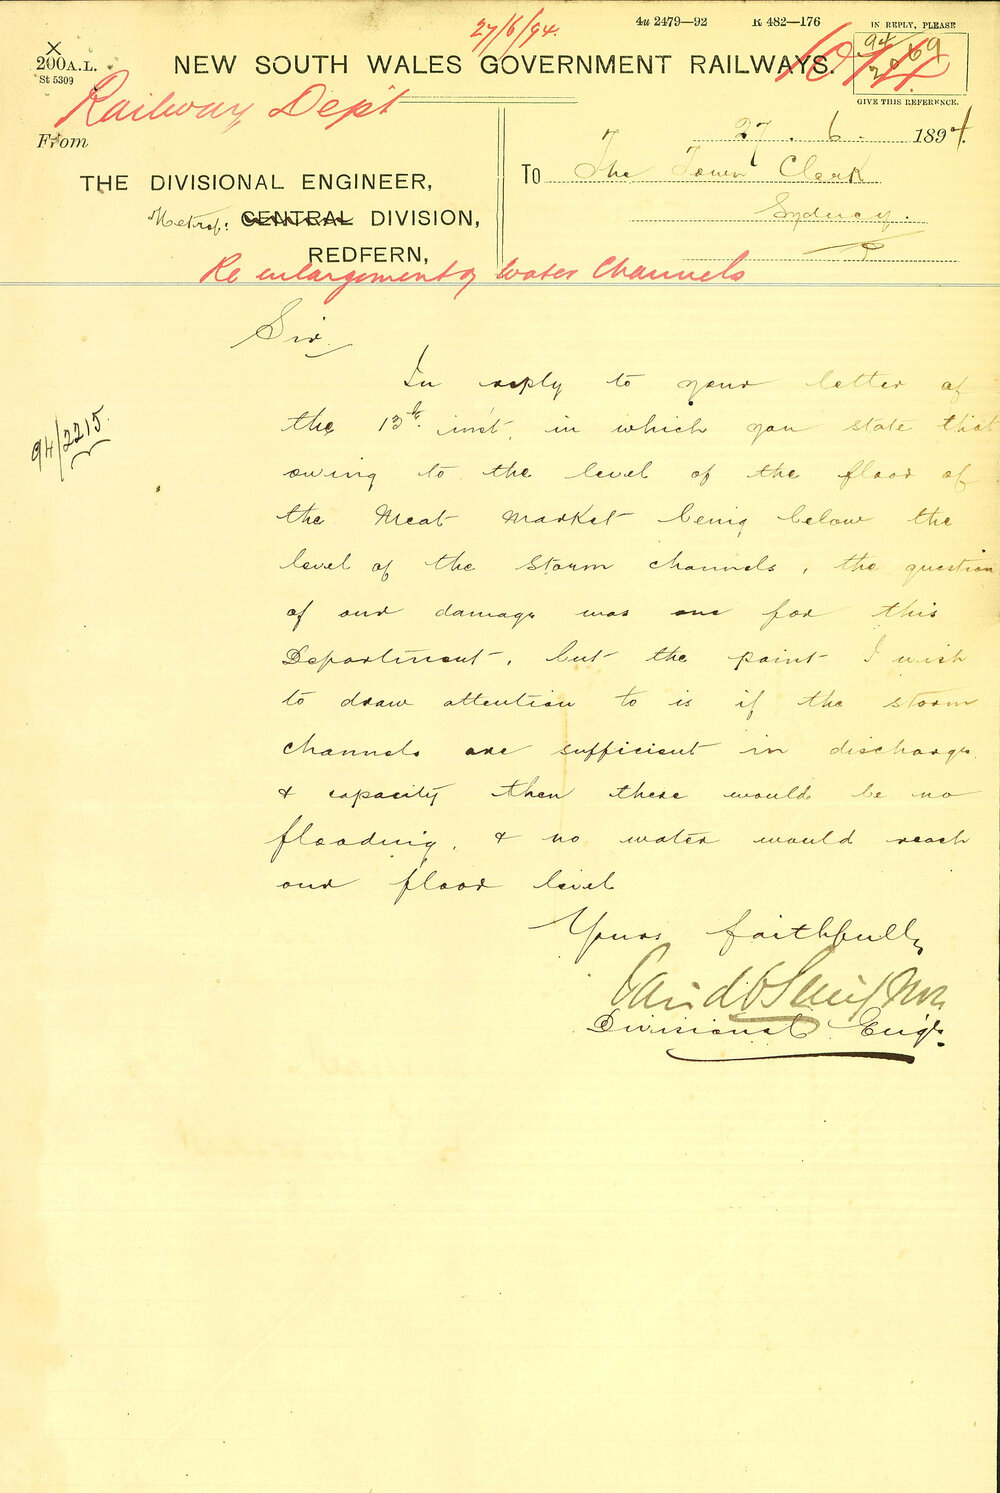 27/6/94.
4u 2479—92 K 482—176 IN REPLY, PLEASE
200A.L.
St 5309
NEW SOUTH WALES GOVERNMENT RAILWAYS.
94
GIVE THIS REFERENCE.
Railway Dep't
From
27 . 6 . 1894.
THE DIVISIONAL ENGINEER,
To The Town Clerk
Metrop: CENTRAL DIVISION,
Sydney.
REDFERN,
Re enlargement of Water Channels
Sir.
In reply to your letter of
94/2215.
the 13th. inst, in which you state that
owing to the level of the floor of
the Meat Market being below the
level of the storm channels, the question
of our damage was one for this
Department, but the point I wish
to draw attention to is if the storm
channels are sufficient in discharge
& capacity then there would be no
flooding, & no water would reach
our floor level
Yours faithfully
Divisional Engr.